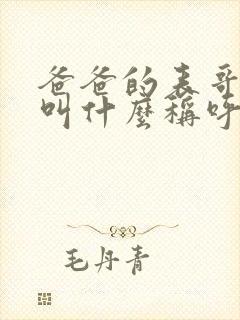 爸爸的表哥
叫什麼稱呼
毛丹青